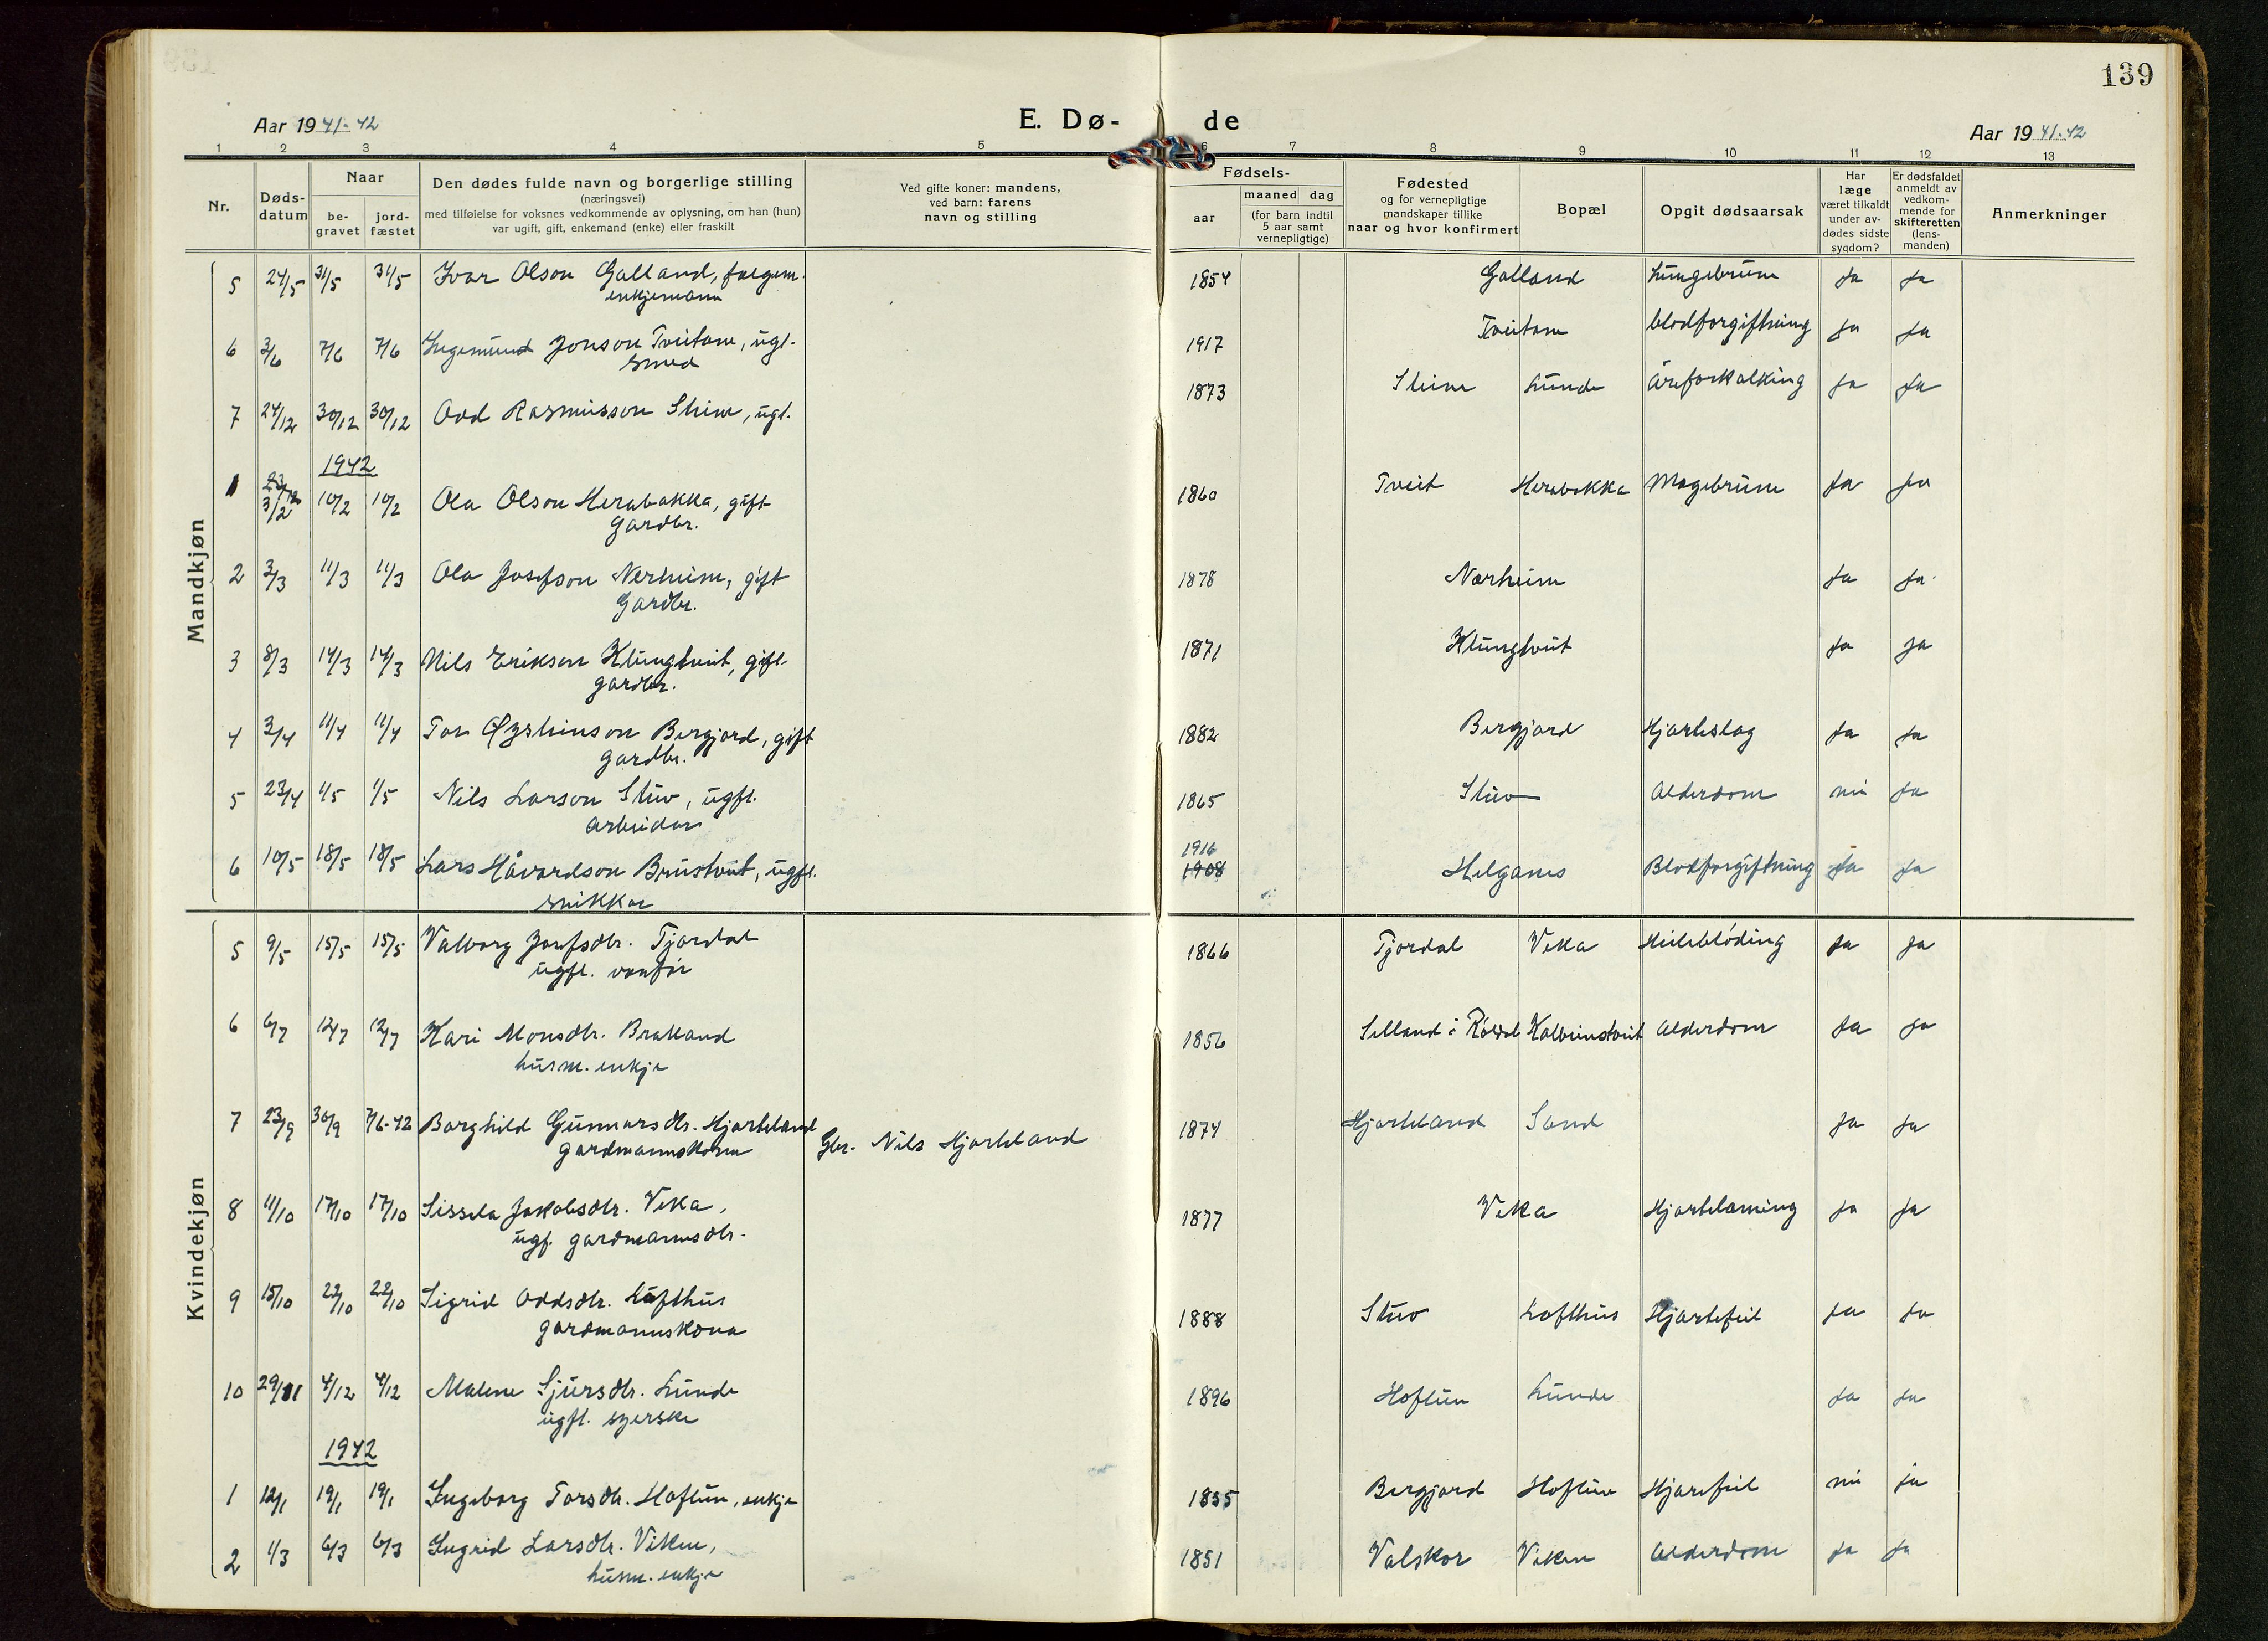 139
Aar 1941-42
E. Dø-
de
Aar 1941-42
1 2 3 4 5 6 7 8 9 10 11 12 13
Nr.
Døds-
datum
Naar
be-
gravet
jord-
fæstet
Den dødes fulde navn og borgerlige stilling
(næringsvei)
med tilføielse for voksnes vedkommende av oplysning, om han (hun)
var ugift, gift, enkemand (enke) eller fraskilt
Ved gifte koner: mandens,
ved barn: farens
navn og stilling
Fødsels-
aar
maaned dag
(for barn indtil
5 aar samt
vernepligtige)
Fødested
og for vernepligtige
mandskaper tillike
naar og hvor konfirmert
Bopæl
Opgit dødsaarsak
Har
læge
været tilkaldt
under av-
dødes sidste
sygdom?
Er dødsfaldet
anmeldt av
vedkom-
mende for
skifteretten
(lens-
manden)
Anmerkninger
Mandkjøn
5 24/5 31/5 31/5 Ivar Olson Galland, 1854 Galland Lungebrunn Ja Ja
enkjemann
6 3/6 7/6 7/6 Ingemund Jonson Tveitane, ugt. 1917 Tveitane blodforgiftning Ja Ja
smed
7 24/12 30/12 30/12 Odd Rasmusson Steine, ugt. 1873 Steine Lunde Åreforkalking Ja Ja
1942
1 3/2 10/2 10/2 Ola Olson Herabakka, gift 1860 Tveit Herabakka Magebrunn Ja Ja
Gardbr.
2 3/3 11/3 11/3 Ola Josefson Nerheim, gift 1878 Nærheim Ja Ja
Gardbr.
3 8/3 14/3 14/3 Nils Erikson Klungtveit, gift 1871 Klungtveit Ja Ja
gardbr.
4 3/4 11/4 11/4 Tor Øysteinson Bergjord, gift 1882 Bergjord Hjarteslag Ja Ja
Gardbr.
5 23/4 1/5 1/5 Nils Larson Stuv, ugft. 1865 Stuv Alderdom nei Ja
Arbeidar
6 10/5 18/5 18/5 Lars Håvardson Brustveit, ugft. 1916 1908 Helganes Blodforgiftning Ja Ja
snikkar
Kvindekjøn
5 9/5 15/5 15/5 Valborg Josefsdtr. Tjørdal 1866 Tjørdal Veka Heilebløding Ja Ja
ugft. vanfør
6 6/7 12/7 12/7 Kari Monsdtr. Brakland 1856 Selland i Røldal Kalveinstveit Alderdom Ja Ja
husm. enkje
7 23/9 30/9 7/6-42 Borghild Gunnarsdtr. Hjorteland Gbr. Nils Hjorteland 1874 Hjorteland Sand Ja Ja
gardmannskona
8 11/10 17/10 17/10 Sissela Jakobsdtr. Veka, 1877 Veka Hjartelaming Ja Ja
ugf. gardmannsdtr.
9 15/10 22/10 22/10 Sigrid Oddsdtr. Lofthus 1888 Stuv Lofthus Hjartefeil Ja Ja
gardmannskona
10 29/11 4/12 4/12 Malene Sjursdtr. Lunde 1896 Hoftun Lunde Ja Ja
ugft. syerske
1942
1 12/1 19/1 19/1 Ingeborg Torsdtr. Hoftun, enkje 1855 Bergjord Hoftun Hjarefeil nei ja
2 1/3 6/3 6/3 Ingrid Larsdtr. Viken, 1851 Valskor Viken Alderdom ja ja
husm. enkje